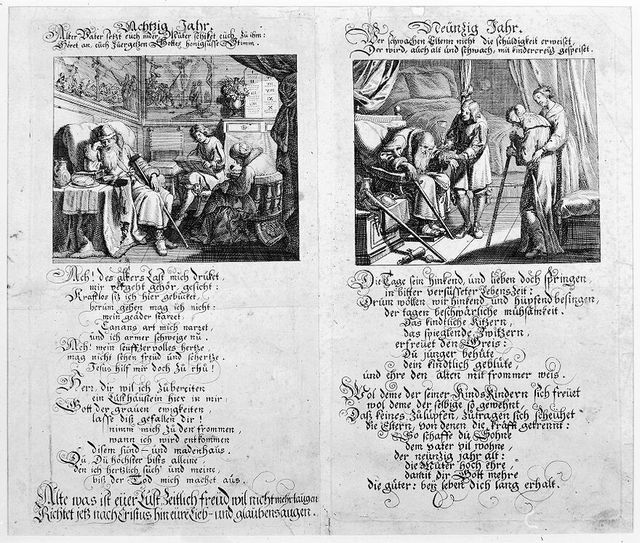 Achtzig Jahr.
Alter Vater setzt euch nider
Höret an
Ach! des alters Last mich drüket,
mir vergeht gehör, gesicht:
Krafftlos siz ich hier gebücket,
herum gehen mag ich nicht:
mein geäder starret,
Canans art mich narret,
und ich armer schweige nu.
Ach! mein seufftzervolles hertze,
mag nicht sehen freud und schertze.
Jesus hilf mir doch zu rhu!
Herr, dir wil ich zubereiten
ein Lusthäuslein hier in mir:
Gott der grauen ewigkeiten,
lasse diß gefallen dir!
nimm mich zu den frommen,
wann ich wird entkommen
disem sünd- und madenhaus.
Du, Du höchster bists alleine,
den ich hertzlich such' und meine,
biß der Tod mich machet aus.
Alte was ist euer Lust Zeitlich freud wil nicht mehr taugen
Richtet jetz nach Cristus hin eure Lieb- und glaubensaugen.
Neünzig Jahr.
Wer schwachen Eltern nicht die schüldigkeit erweiset,
Der wird, auch alt und schwach, mit kindercreiz gespeiset.
Die Tage sein hinkend, und lieben doch springen,
in bitter versüsseter Lebenszeit:
Drum wollen wir hinkend und hüpfend besingen,
der tagen beschwärliche mühsamkeit.
Das kindliche Kitzern,
das spieglende Zwitzern,
erfreuet den Greis:
Du jünger behüte
dein kindlich geblüte,
und ehre den alten mit frommer weis.
Wol deme der seiner Kinds Kindern sich freuet
wol deme der selbige so gewehnt,
Daß keines
die Eltern, von denen die krafft getrennt:
So schaffe du Sohne
dem vater vil wohne,
der neünzig jahr alt:
die Muter hoch ehre,
damit dir Gott mehre
die güter: den leben dich lang erhalt.